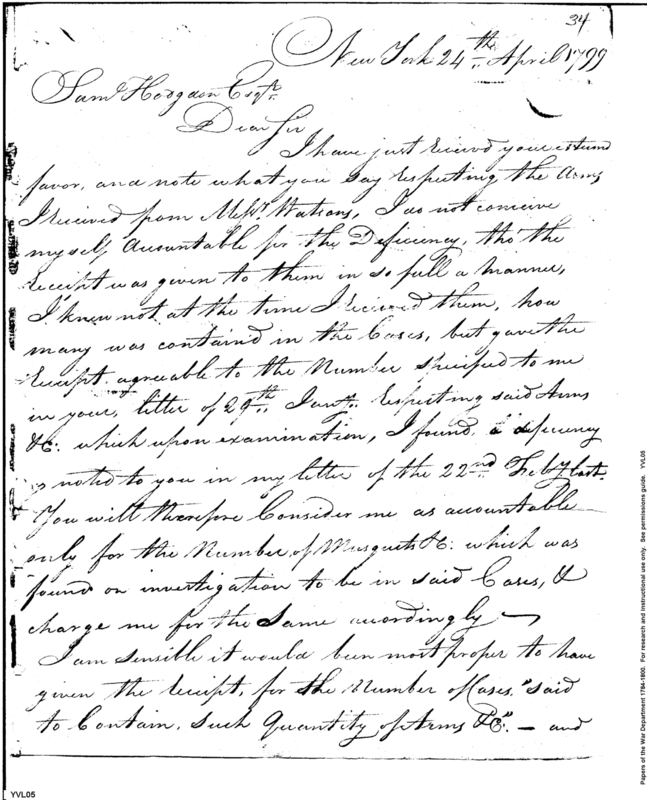 34
New York 24th April 1799
Saml Hodgdon Esqr.
Dear Sir
I have just receivd your esteemd
favor, and note what you say respecting the Arms
I received from Messrs. Watsons, I do not conceive
myself accountable for the Deficiency, tho' the
receipt was given to them in so full a manner,
I knew not at the time I recieved them, how
many was containd in the Cases, but gave the
receipt agreeable to the Number specified to me
in your letter of 29th Jany. respecting said Arms
&c: which upon examination, I found a deficiency
as noted to you in my letter of the 22nd Feby last.
You will therefore Consider me as accountable
only for the Number of Musquets &c: which was
found on investigation to be in said Cases, &
charge me for the Same accordingly —
I am sensible it would been most proper to have
given the receipt, for the Number of Cases, "said
to Contain, such Quantity of Arms &c." — and
YVL05
Papers of the War Department 1784-1800. For research and instructional use only. See permissions guide. YVL05